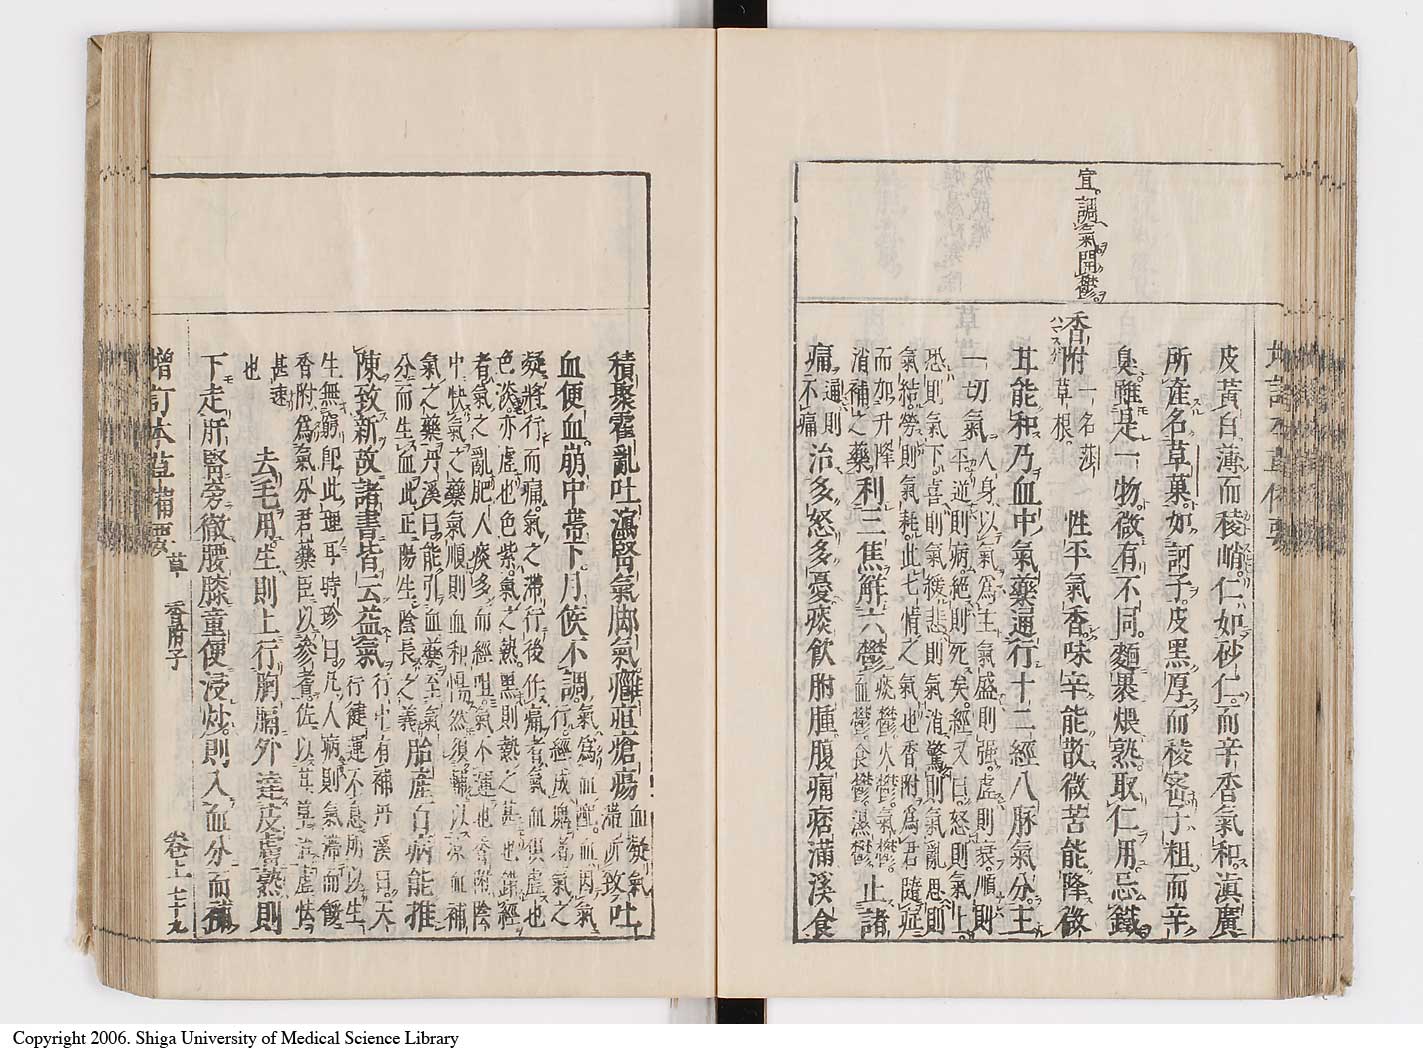 宜調氣開鬱
皮黃白薄而稜峭仁如砂仁而辛香氣和滇廣
所產名草菓如訶子皮黑厚而稜密子粗而辛
臭雖是一物微有不同麵裹煨熟取仁用忌鐵
香附
一名莎
草根
性平氣香味辛能散微苦能降微
耳能和乃血中氣藥通行十二經八脈氣分主
一切氣
人身以氣爲主氣盛則强虛則衰順則
平逆則病絕則死矣經又曰怒則氣上
恐則氣下喜則氣緩悲則氣消驚則氣亂思則
氣結勞則氣耗此七情之氣也香附爲君隨症
而加升降
消補之藥
利三焦解六鬱
痰鬱火鬱氣鬱
血鬱食鬱濕鬱
止諸
痛
通則
不痛
治多怒多憂痰飲胕腫腹痛痞滿溪食
積聚霍亂吐瀉腎氣脚氣癰疽瘡瘍
血凝氣
滯所致
吐
血便血崩中帶下月候不調
氣爲血配血因氣
行經成塊者氣之
凝將行而痛氣之滯行後作痛者氣血俱虛也
色淡亦虛也色紫氣之熱黑則熱之甚也錯經
者氣之亂肥人痰多而經阻氣不運也香附陰
中快氣之藥氣順則血和暢然須輔以凉血補
氣之藥丹溪曰能引血藥至氣
分而生血此正陽生陰長之義
胎產百病能推
陳致新故諸書皆云益氣
行中有補丹溪曰天
行健運不息所以生
生無窮即此理耳時珍曰凡人病則氣滯而餒
香附爲氣分君藥臣以參耆佐以甘草治虛怯
甚速
也
去毛用生則上行胸膈外達皮膚熟則
下走肝腎旁徹腰膝童便浸炒則入血分而補
增訂本草備要
草
香附子
卷上
七十九